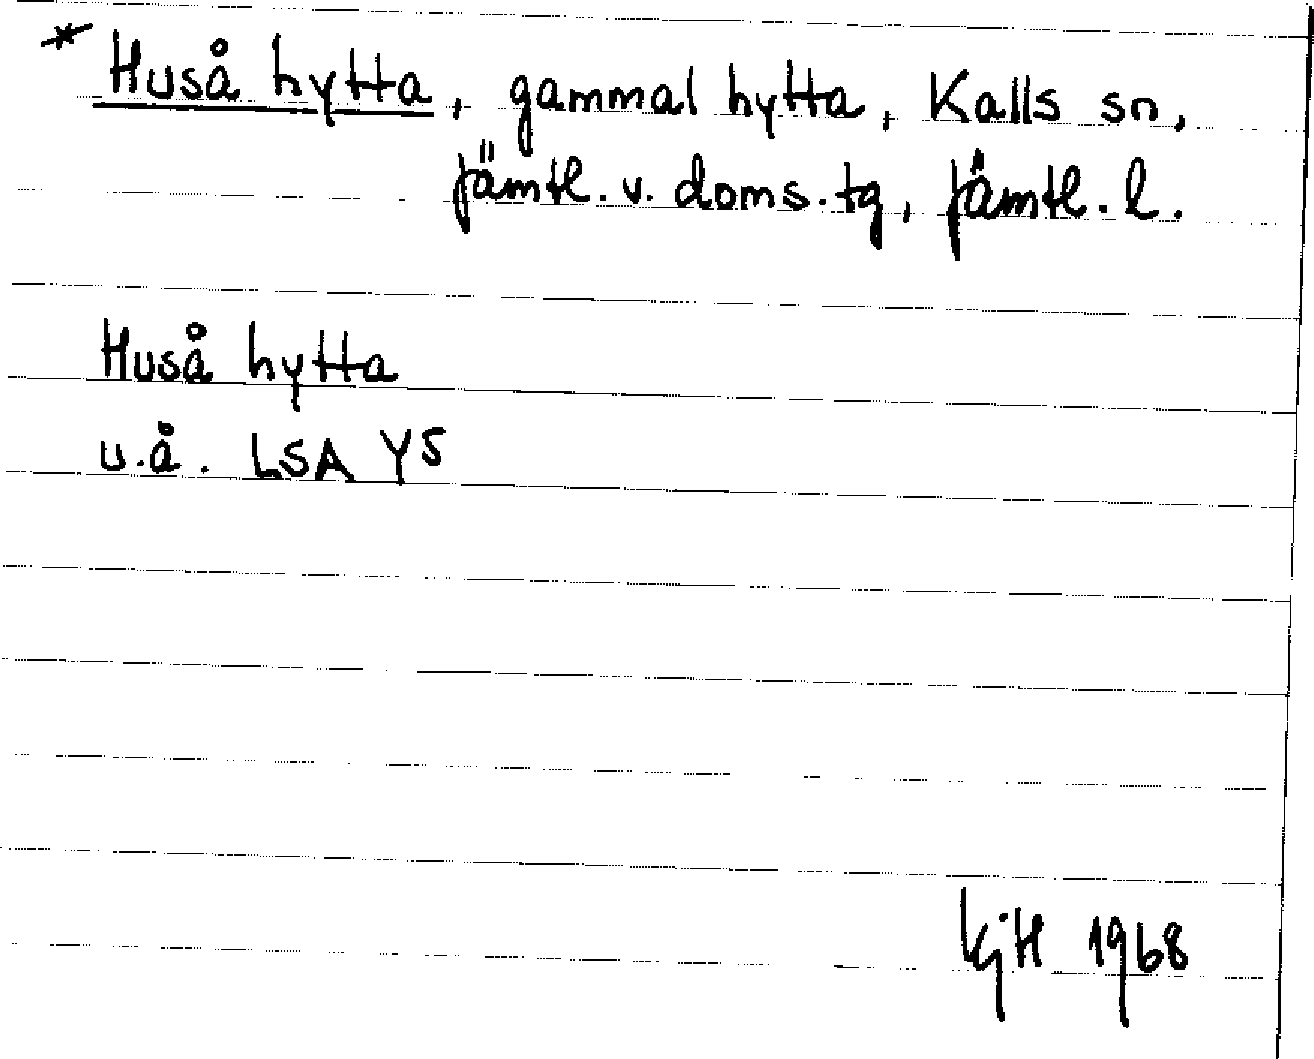 * Huså hytta, gammal hytta, Kalls sn,
Jämtl. v. doms. tg, Jämtl. l.
Huså hytta
u.å. LSA Y5
KjH 1968